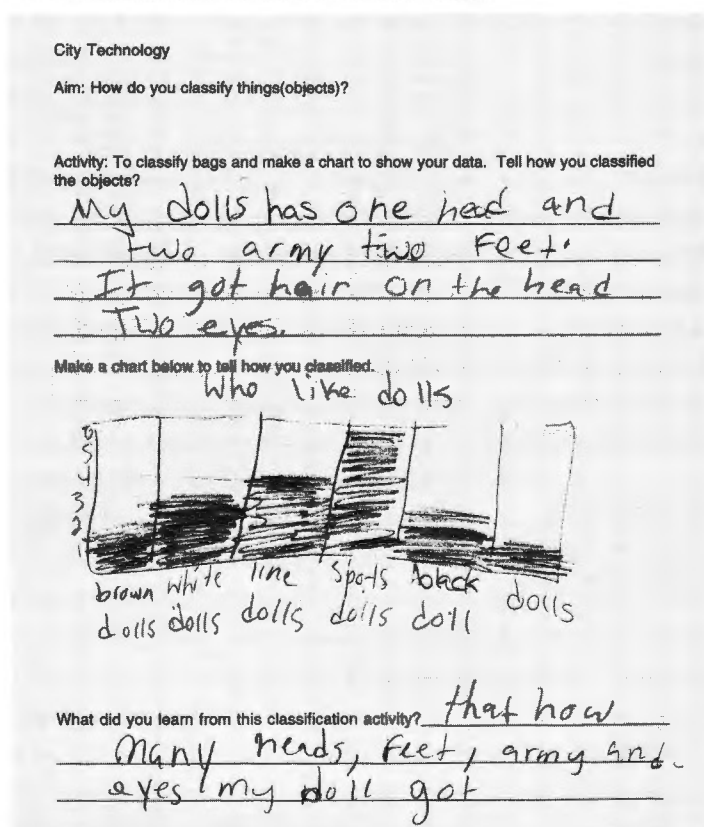 City Technology
Aim: How do you classify things(objects)?
Activity: To classify bags and make a chart to show your data. Tell how you classified
the objects?
My dolls has one head and
two army two feet.
It got hair on the head
Two eyes.
Make a chart below to tell how you classified.
Who like dolls
6
5
4
3
2
1
brown white line Spots black dolls
dolls dolls dolls dolls doll
What did you learn from this classification activity? that how
many heads, feet, army and
eyes my doll got